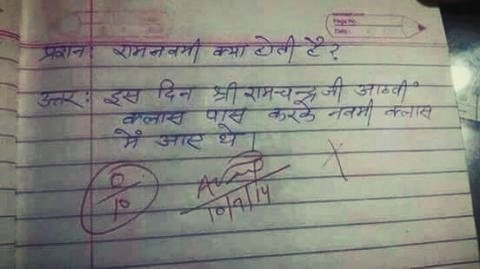 Page No.
Date
प्रशन: रामनवमी क्या होती है?
उत्तर: इस दिन श्री रामचन्द्र जी आठवीं
क्लास पास करके नवमी क्लास
में आए थे।
0/10
10/7/14
X